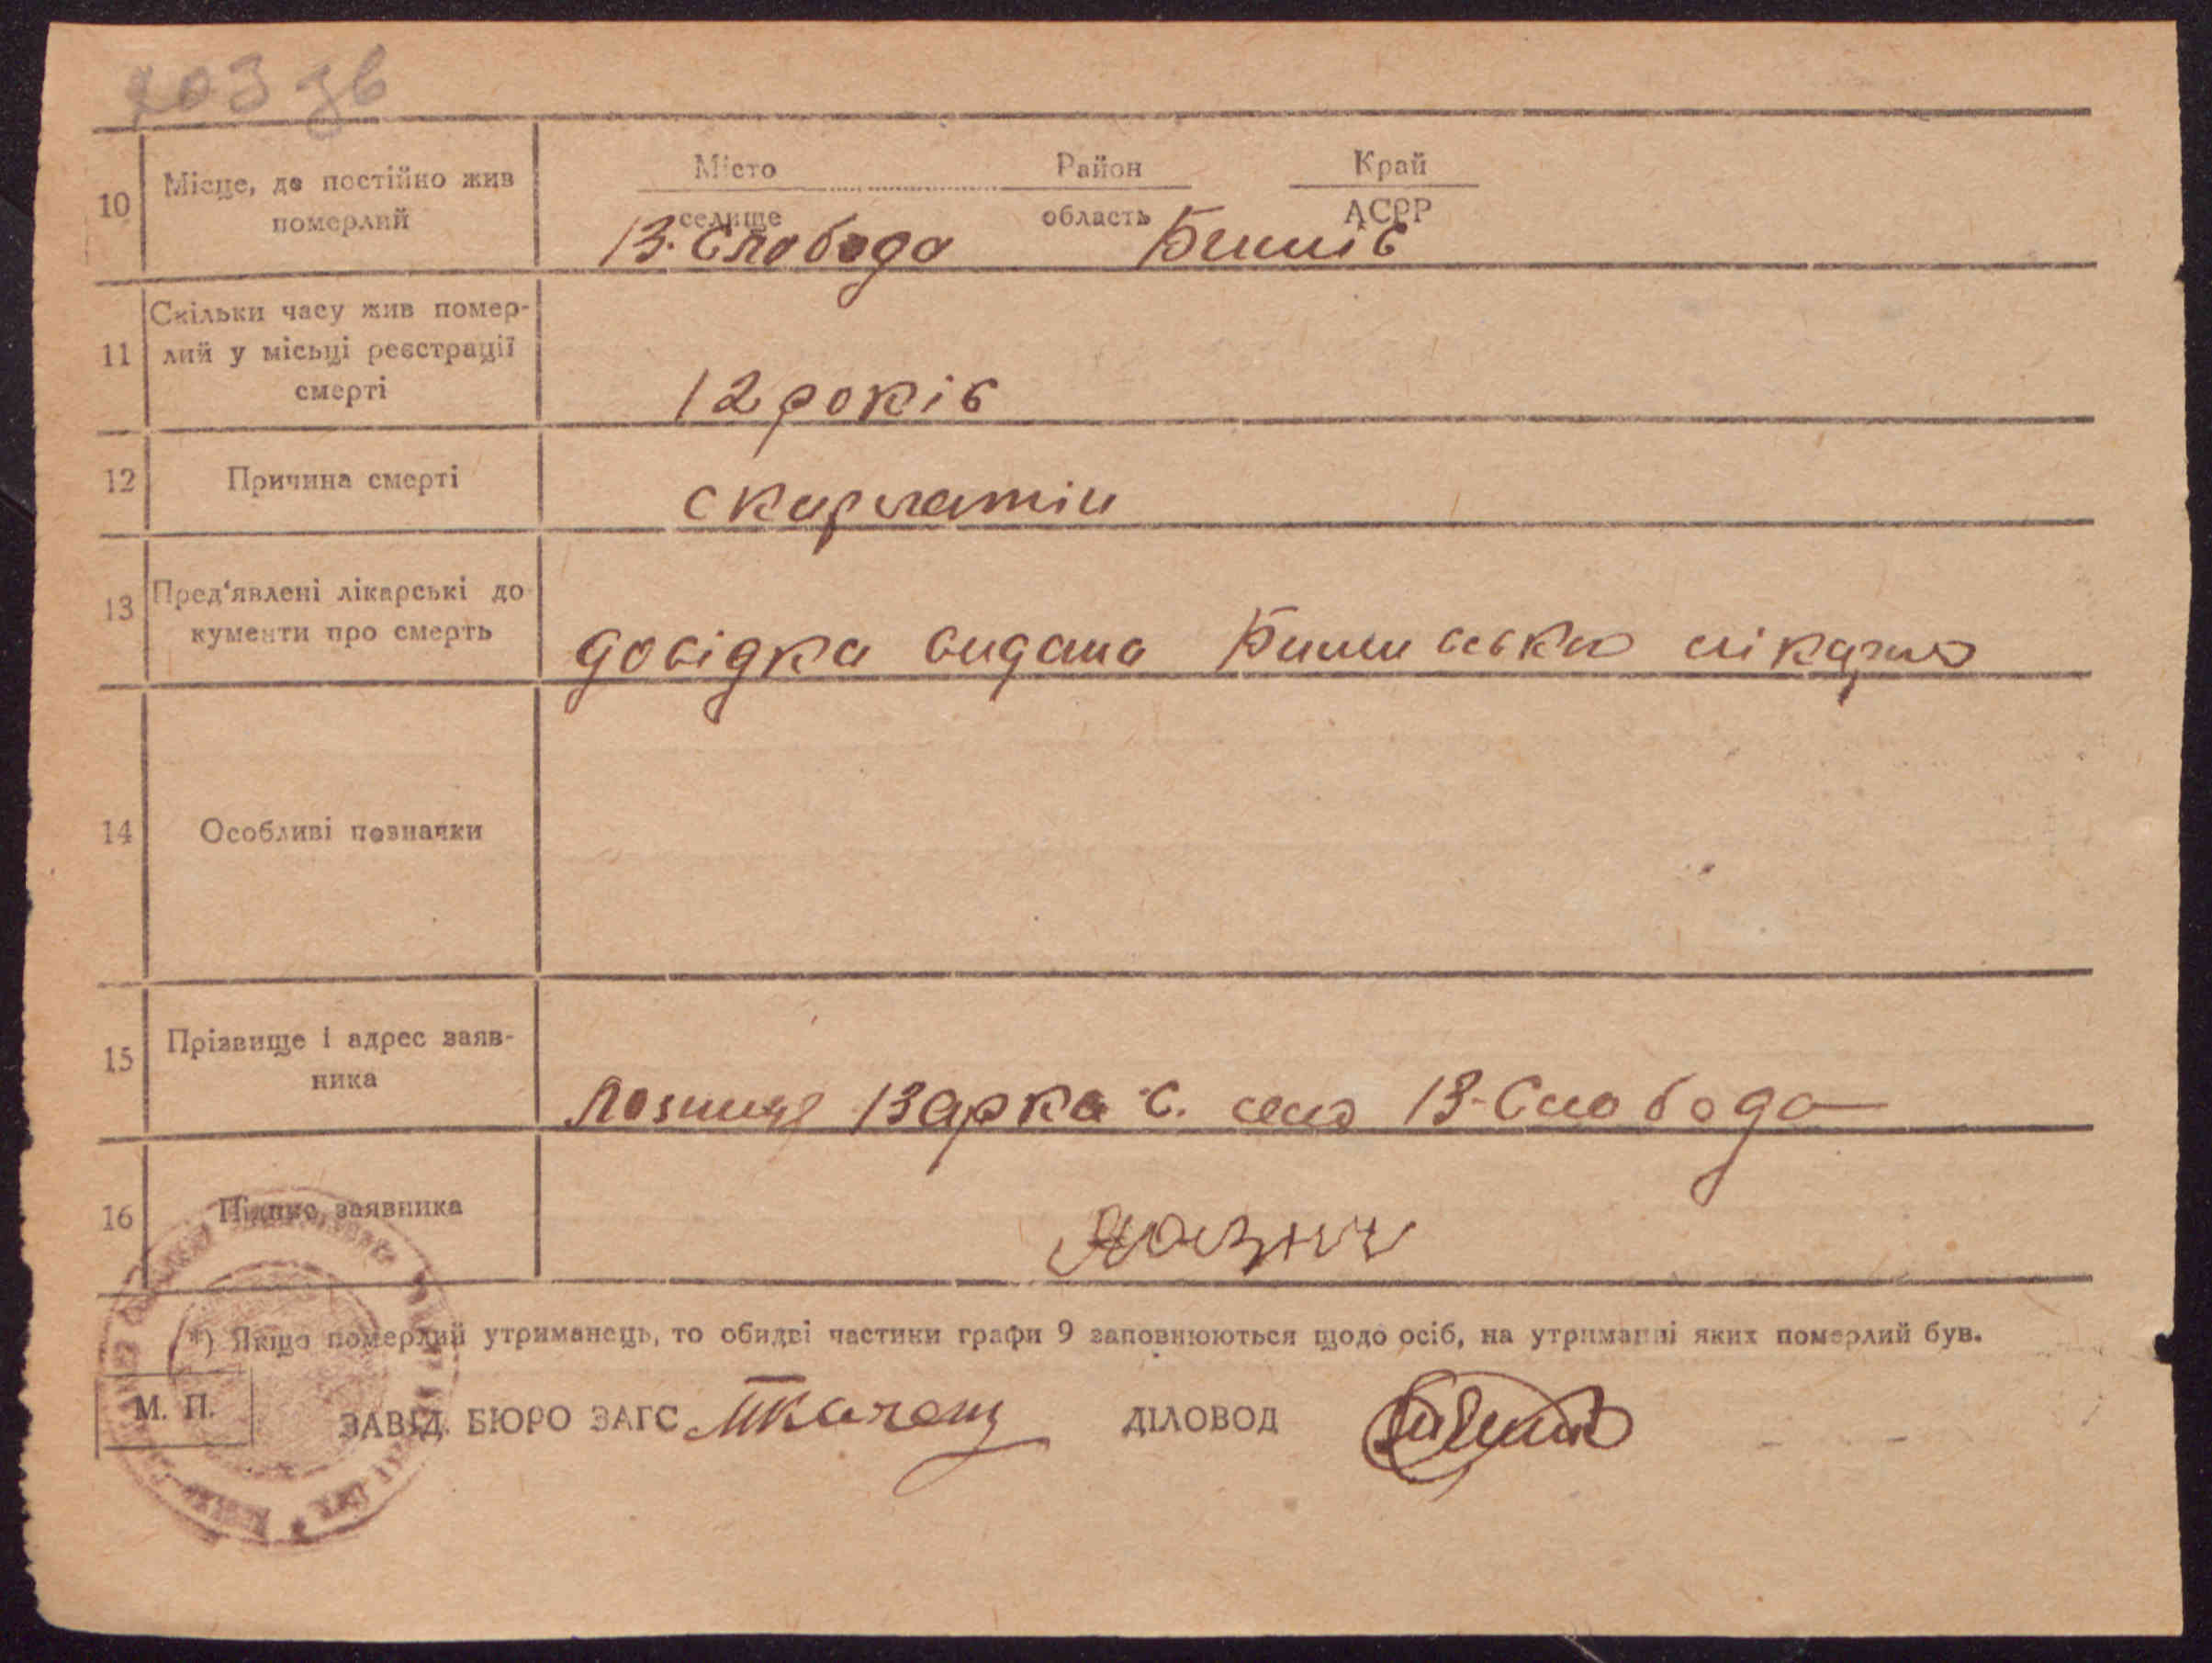 203 зв
10 Місце, де постійно жив померлий
Місто Район Край
селище область АСРР
В. Слобода Бишів
11 Скільки часу жив помер-
лий у місьці реєстрації
смерті
12 років
12 Причина смерті
скарлатін
13 Пред'явлені лікарські до
кументи про смерть
довідка видана лікарню
14 Особливі позначки
15 Прізвище і адрес заяв-
ника
Лозиця Варка С. село В-Слобода
16 Підпис заявника
*) Якщо померлий утриманець, то обидві частини графи 9 заповнюються щодо осіб, на утриманні яких померлий був.
М. П.
ЗАВІД. БЮРО ЗАГС ДІЛОВОД